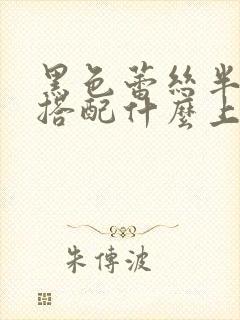 黑色蕾丝半
搭配什麼上
朱傳波